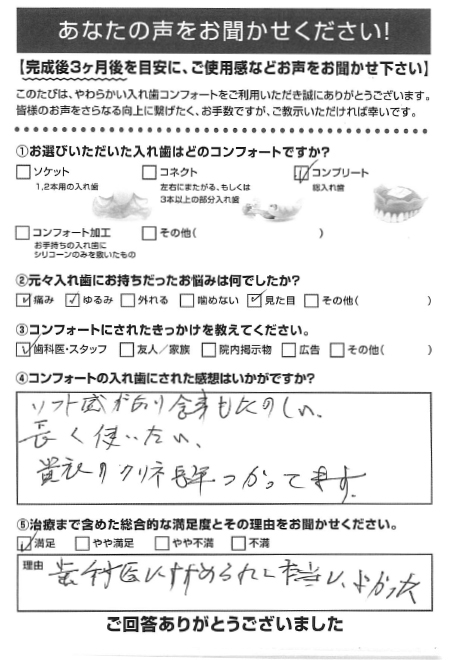 あなたの声をお聞かせください!
【完成後3ヶ月後を目安に、ご使用感などお声をお聞かせ下さい】
このたびは、やわらかい入れ歯コンフォートをご利用いただき誠にありがとうございます。
皆様のお声をさらなる向上に繋げたく、お手数ですが、ご教示いただければ幸いです。
①お選びいただいた入れ歯はどのコンフォートですか?
ソケット コネクト コンプリート
1,2本用の入れ歯 左右にまたがる、もしくは 総入れ歯
3本以上の部分入れ歯
コンフォート加工 その他( )
お手持ちの入れ歯に
シリコーンのみを敷いたもの
②元々入れ歯にお持ちだったお悩みは何でしたか?
痛み ゆるみ 外れる 噛めない 見た目 その他( )
③コンフォートにされたきっかけを教えてください。
歯科医・スタッフ 友人/家族 院内掲示物 広告 その他( )
④コンフォートの入れ歯にされた感想はいかがですか?
ソフト感があり食事もたのしい、
長く使いたい、
貴社のクリネ長年つかってます.
⑤治療まで含めた総合的な満足度とその理由をお聞かせください。
満足 やや満足 やや不満 不満
理由 歯科医にすすめられて本当に、よかった
ご回答ありがとうございました